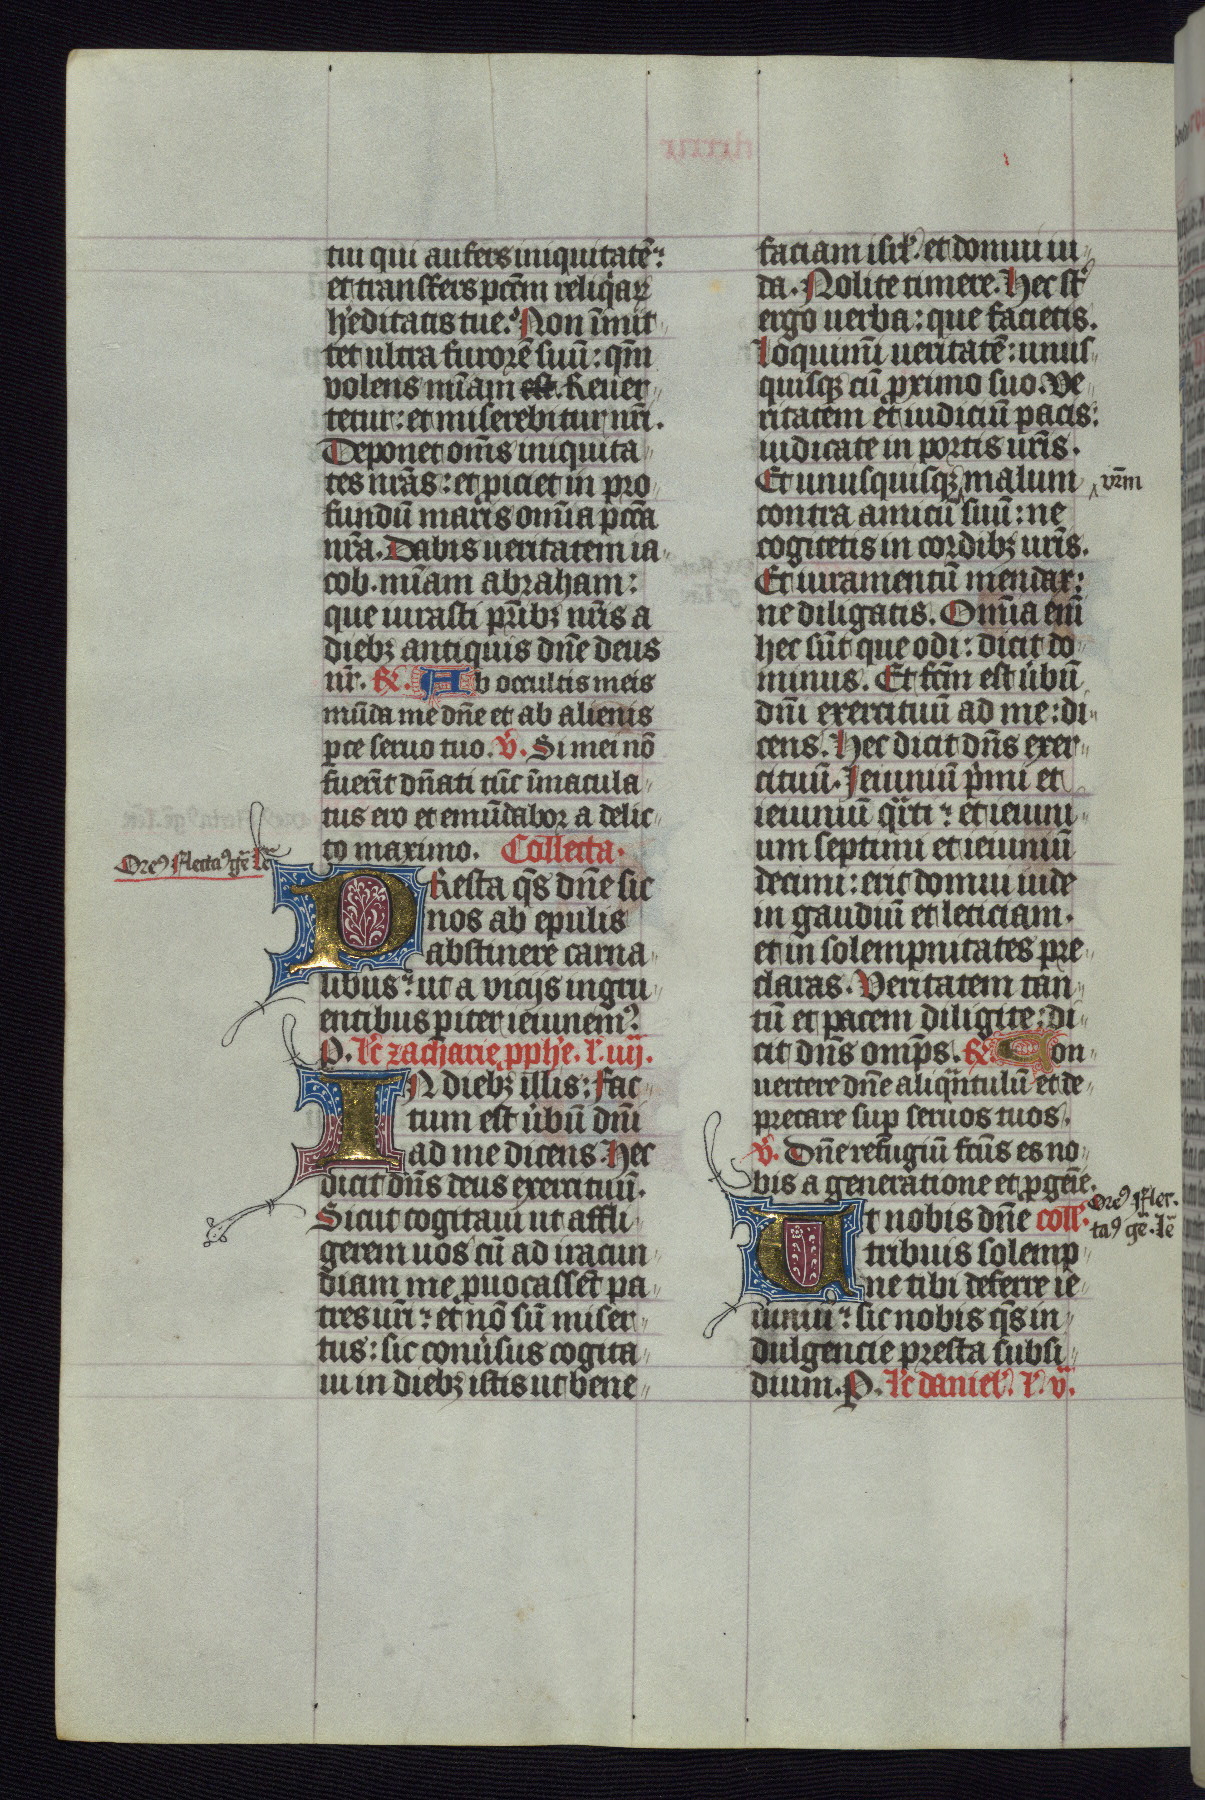 tui qui aufers iniquitatē:
et transfers pctm̄ reliqͥaꝝ
h'editatis tue. Non īmit-
tet ultra furorē suū: qm̄
volens mīam est. Reuer
tetur: et miserebitur nr̄i.
Deponet om̄s iniquita-
tes nr̄as: et ꝓiciet in pro-
fundū maris om̄ia pcc̄a
nr̄a. Dabis ueritatem ia-
cob. mīam abraham:
que iurasti pr̄ibꝫ nr̄is a
diebꝫ antiquis dn̄e deus
nr̄. R. Ab occultis meis
mūda me dn̄e et ab alienis
ꝑce seruo tuo. V. Si mei nō
fuerīt dn̄ati tūc īmacula-
tus ero et emūdabor a delic-
to maximo. Collecta.
Orem⁹ Flectam⁹ gē. Lē
PResta qs̄ dn̄e sic
nos ab epulis
abstinere carna-
libus: ut a vicijs ingru-
entibus ꝑiter ieiunem⁹.
P. Lc̄ zacharie ꝓph'e. L. iiij.
IN diebꝫ illis: Fac-
tum est ūbū dn̄i
ad me dicens. Hec
dicit dn̄s deus exercituū.
Sicut cogitaui ut affli-
gerem uos cū ad iracun-
diam me ꝓuocassēt pa-
tres ur̄i: et nō sū miser-
tus: sic conūsus cogita-
ui in diebꝫ istis ut bene-
faciam isrl'. et domui iu-
da. Nolite timere. Hec st̄
ergo uerba: que facietis.
Loquimī ueritatē: unus-
quisqꝫ cū ꝓximo suo. Ve-
ritatem et iudiciū pacis:
iudicate in portis ur̄is.
Et unusquisqꝫ malum ^ vr̄m
contra amicū suū: ne
cogitetis in cordibꝫ ur̄is.
Et iuramentū mendax:
ne diligatis. Om̄ia enī
hec sūt que odi: dicit do-
minus. Et fc̄m est ūbū
dn̄i exercituū ad me: di-
cens. Hec dicit dn̄s exer-
cituū. Ieiuniū pͥmi et
ieiuniū qͣrti: et ieiuni-
um septimi et ieiuniū
decimi: erit domui iude
in gaudiū et leticiam.
et in solempnitates pre-
claras. Veritatem tan-
tū et pacem diligite: di-
cit dn̄s omp̄s. R. Con-
uertere dn̄e aliqͣntulū et de-
precare suꝑ seruos tuos.
V. Dn̄e refugiū fc̄us es no-
bis a generatione et ꝓgeīe.
Orem⁹ Flec-
tam⁹ gē. Lē
UT nobis dn̄e coll'.
tribuis solemp-
ne tibi deferre ie-
iuniū: sic nobis qs̄ in-
dulgencie presta subsi-
dium. P. Lc̄ daniel'. L. v.